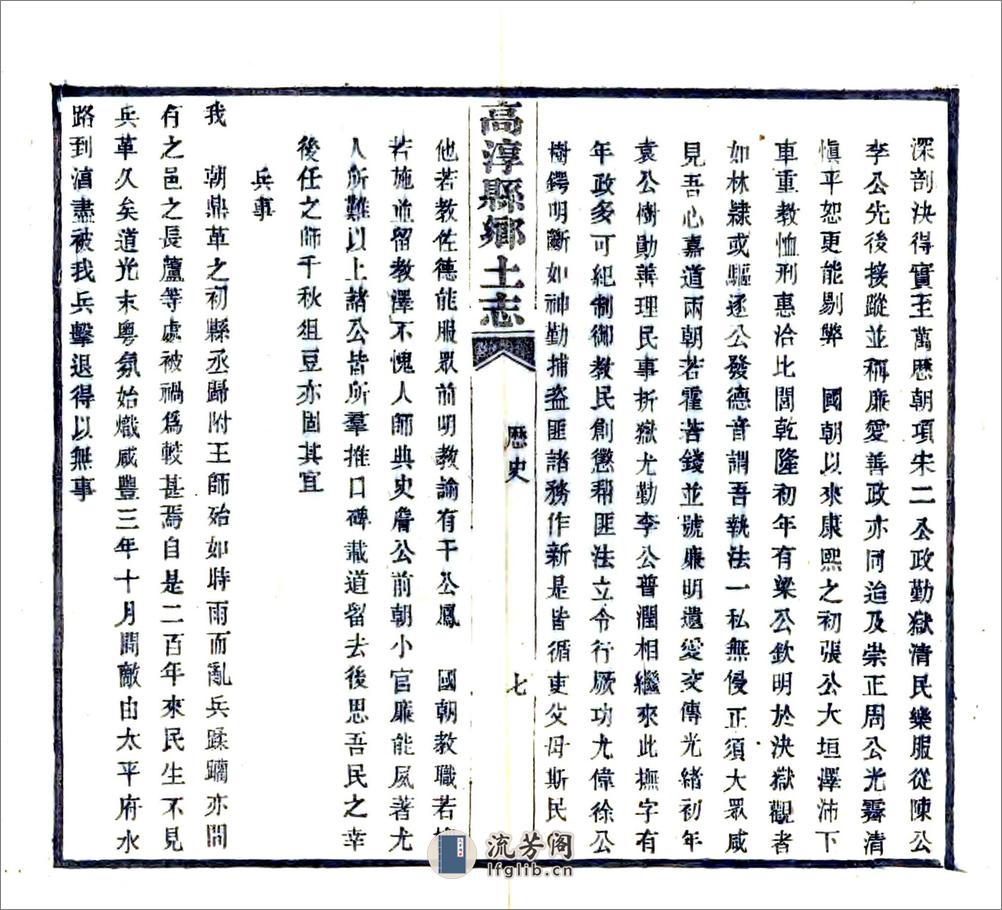 深剖決得實至萬歷朝項朱二公政勤獄清民樂服從陳公
李公先後接蹤並稱廉愛善政亦同迨及崇正周公光霽清
愼平恕更能剔弊　國朝以來康熙之初張公大垣澤沛下
車重教恤刑惠洽比閭乾隆初年有梁公欽明於決獄觀者
如林隸或驅逐公發德音謂吾執法一私無侵正須大眾咸
見吾心嘉道兩朝若霍若錢並號廉明遺愛交傳光緒初年
袁公樹勛善理民事折獄尤勤李公普潤相繼來此撫字有
年政多可紀制御教民創懲稱匪法立令行厥功尤偉徐公
樹鍔明斷如神勤捕盜匪諸務作新是皆循吏父母斯民
高淳縣鄉土志
歷史
七
他若教佐德能服眾前明教諭有于公鳳　國朝教職若
若施並留教澤不愧人師典史詹公前朝小官廉能夙著尤
人所難以上諸公皆所羣推口碑載道留去後思吾民之幸
後任之師千秋俎豆亦固其宜
兵事
我　朝鼎革之初縣丞歸附王師殆如時雨而亂兵蹂躪亦間
有之邑之長蘆等處被禍爲較甚焉自是二百年來民生不見
兵革久矣道光末粵氛始熾咸豐三年十月間敵由太平府水
路到漕盡被我兵擊退得以無事
流芳阁
lfglib.cn